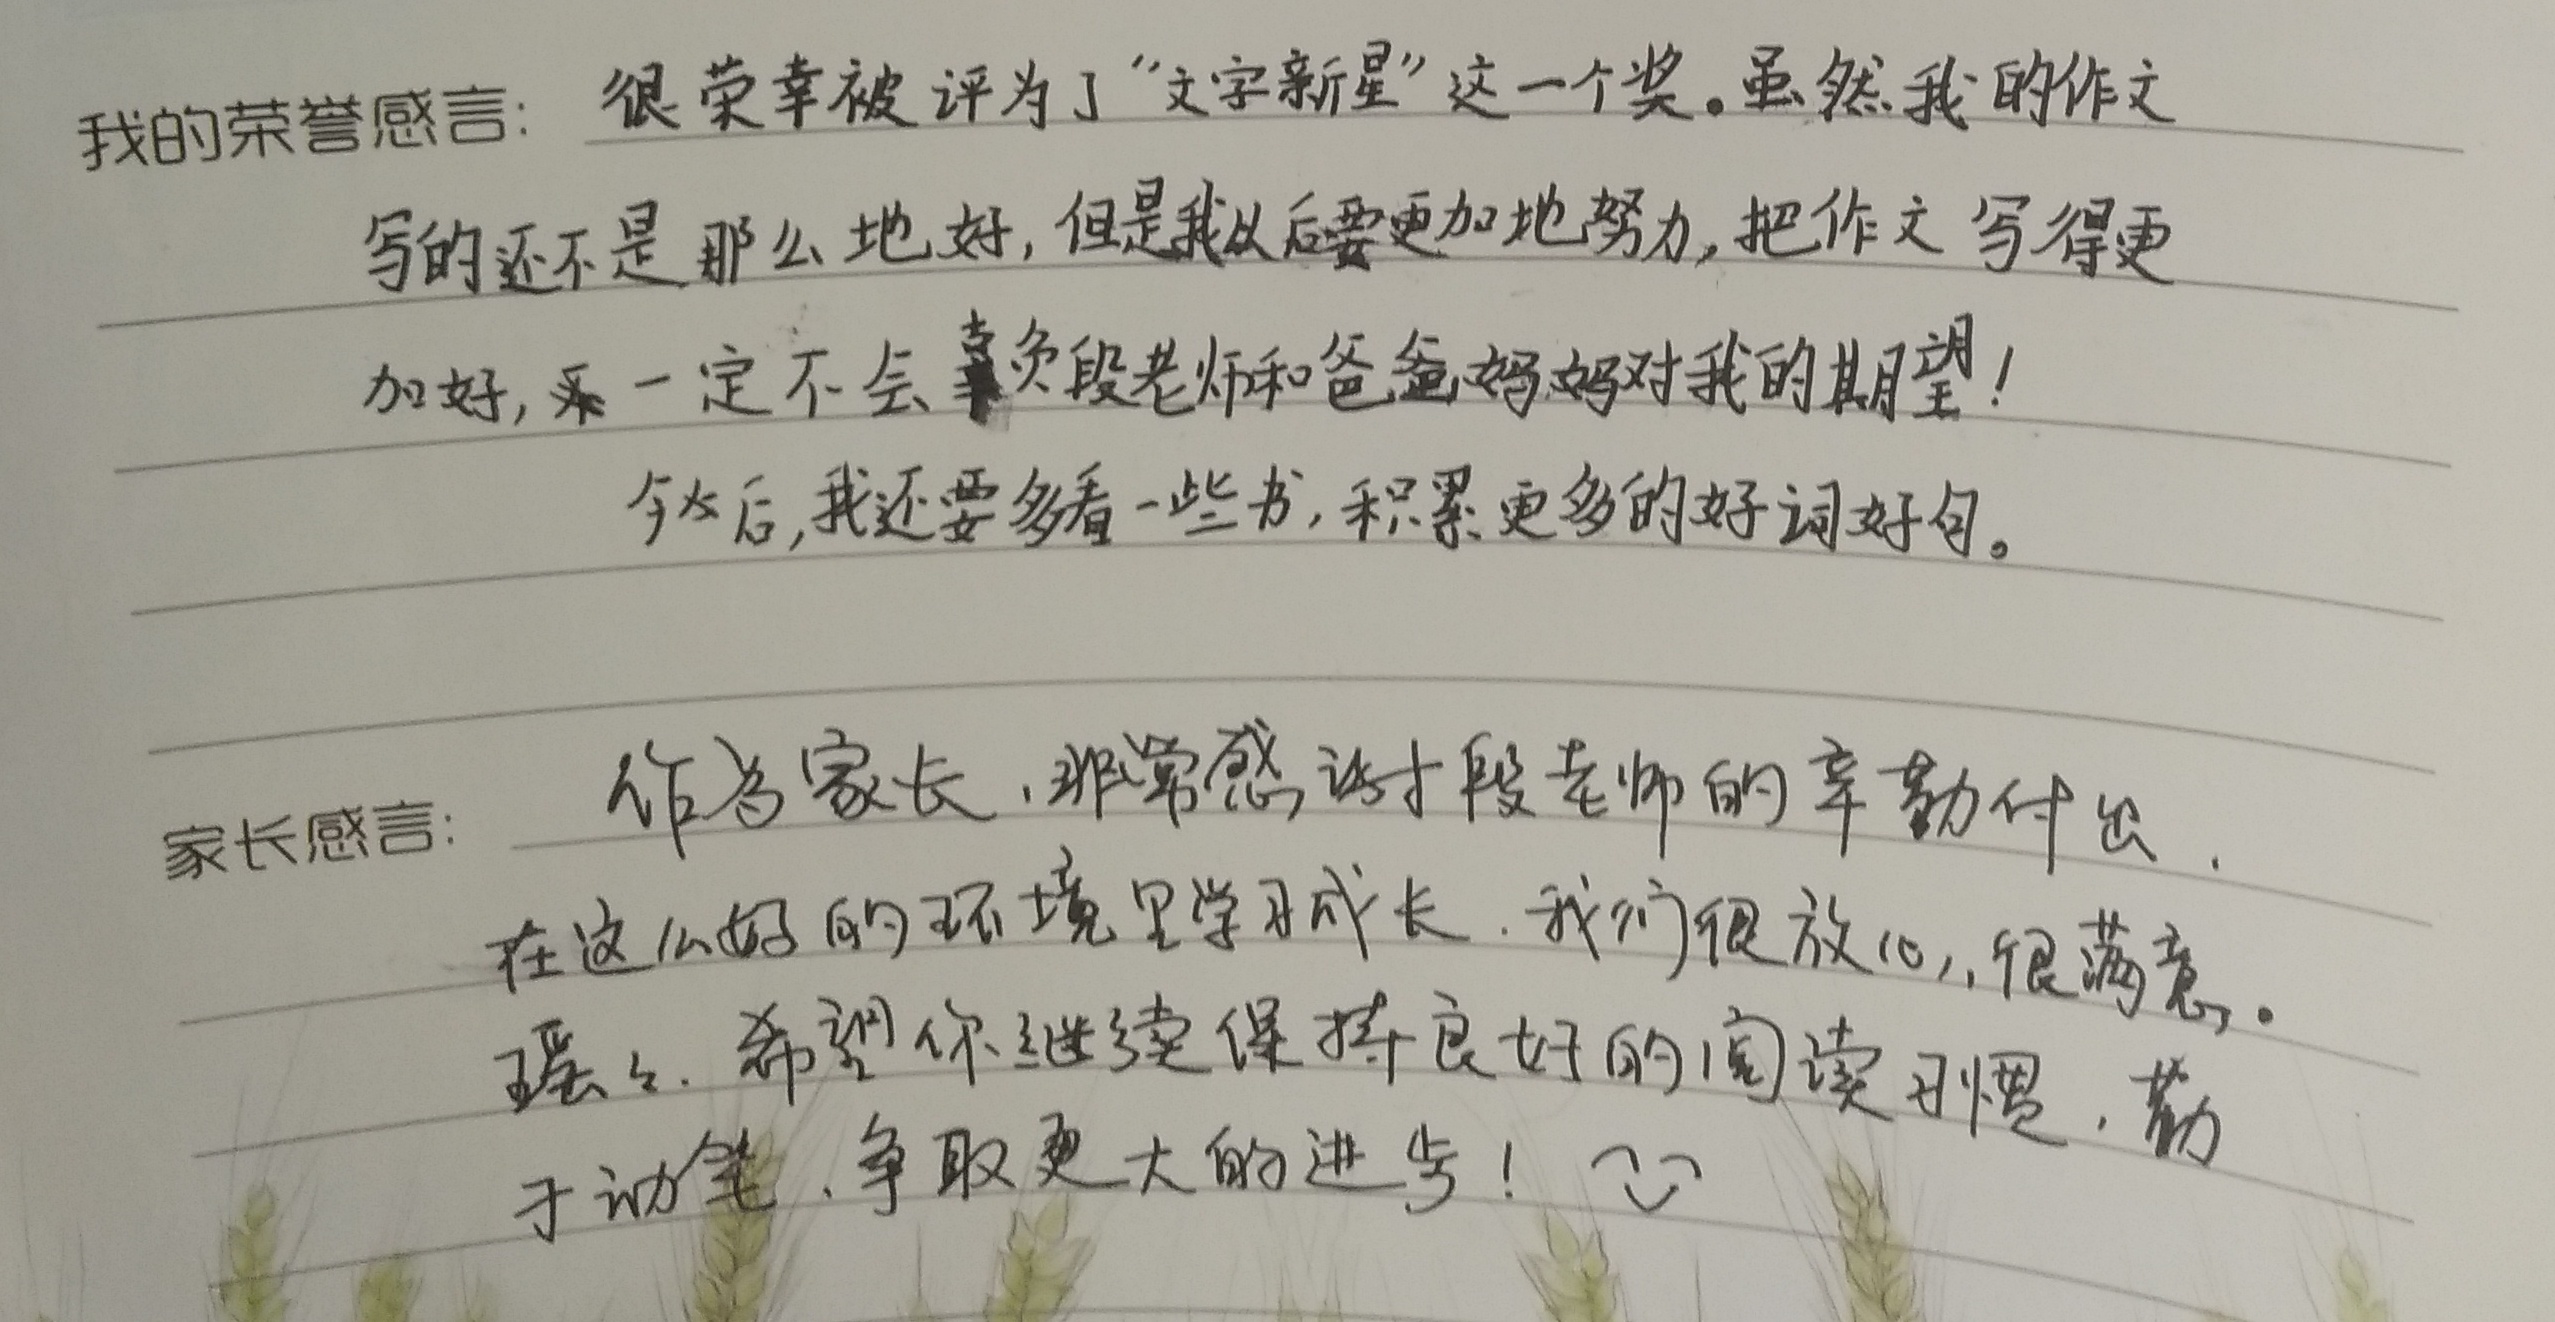 我的荣誉感言: 很荣幸被评为了“文字新星”这一个奖。虽然我的作文
写的还不是那么地好,但是我以后要更加地努力,把作文写得更
加好,一定不会负段老师和爸爸妈妈对我的期望!
今后,我还要多看一些书,积累更多的好词好句。
家长感言: 作为家长,非常感谢段老师的辛勤付出.
在这么好的环境里学习成长.我们很放心,很满意。
瑶々.希望你继续保持良好的阅读习惯.勤
于动笔.争取更大的进步!